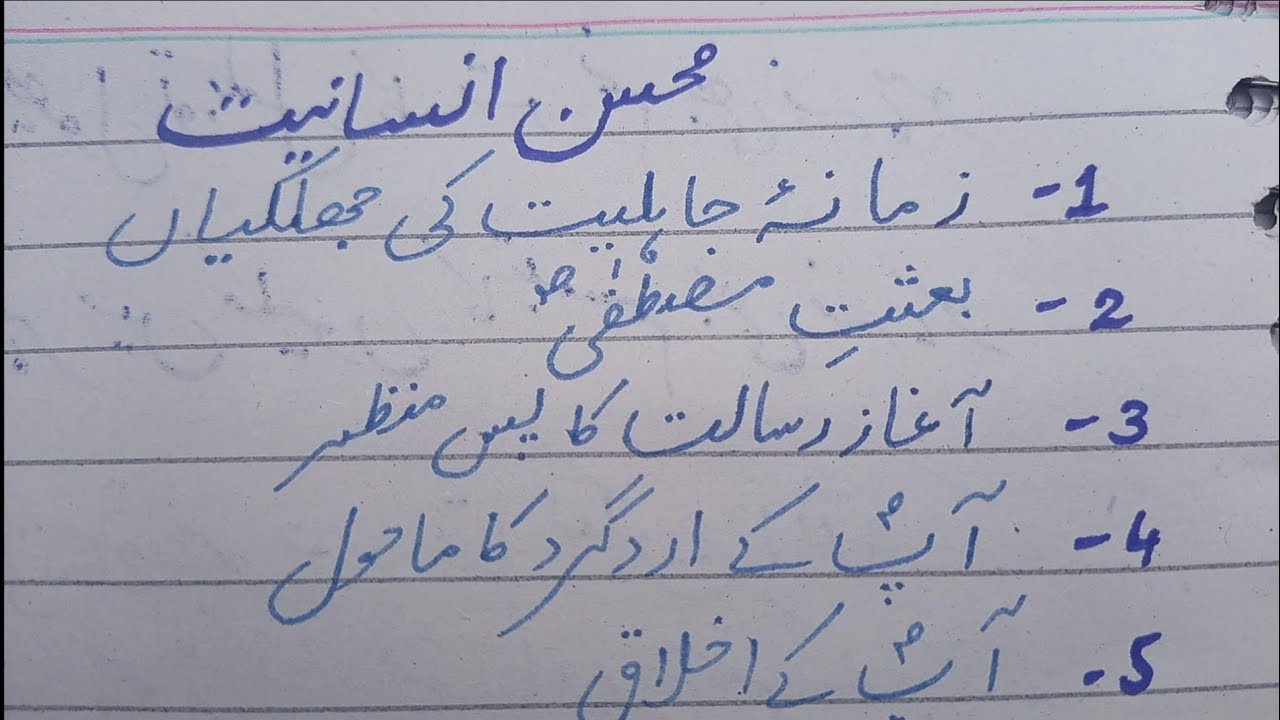 محسن انسانیت
1- زمانۂ جاہلیت کی جھلکیاں
2- بعثتِ مصطفٰیؐ
3- آغاز رسالت کا پس منظر
4- آپؐ کے اردگرد کا ماحول
5- آپؐ کے اخلاق